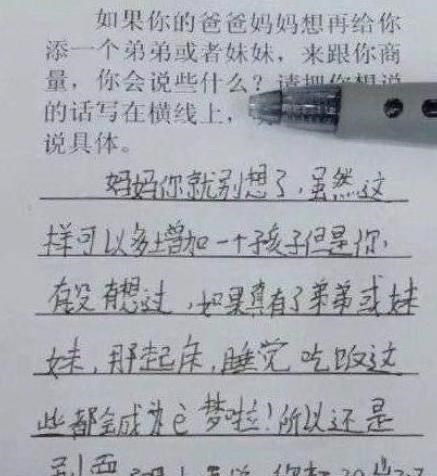 如果你的爸爸妈妈想再给你
添一个弟弟或者妹妹，来跟你商
量，你会说些什么？请把你想说
的话写在横线上，
说具体。
妈妈你就别想了，虽然这
样可以多增加一个孩子但是你，
有没有想过，如果真有了弟弟或妹
妹，那起床，睡觉 吃饭这
些都会成为它梦啦！所以还是
别要